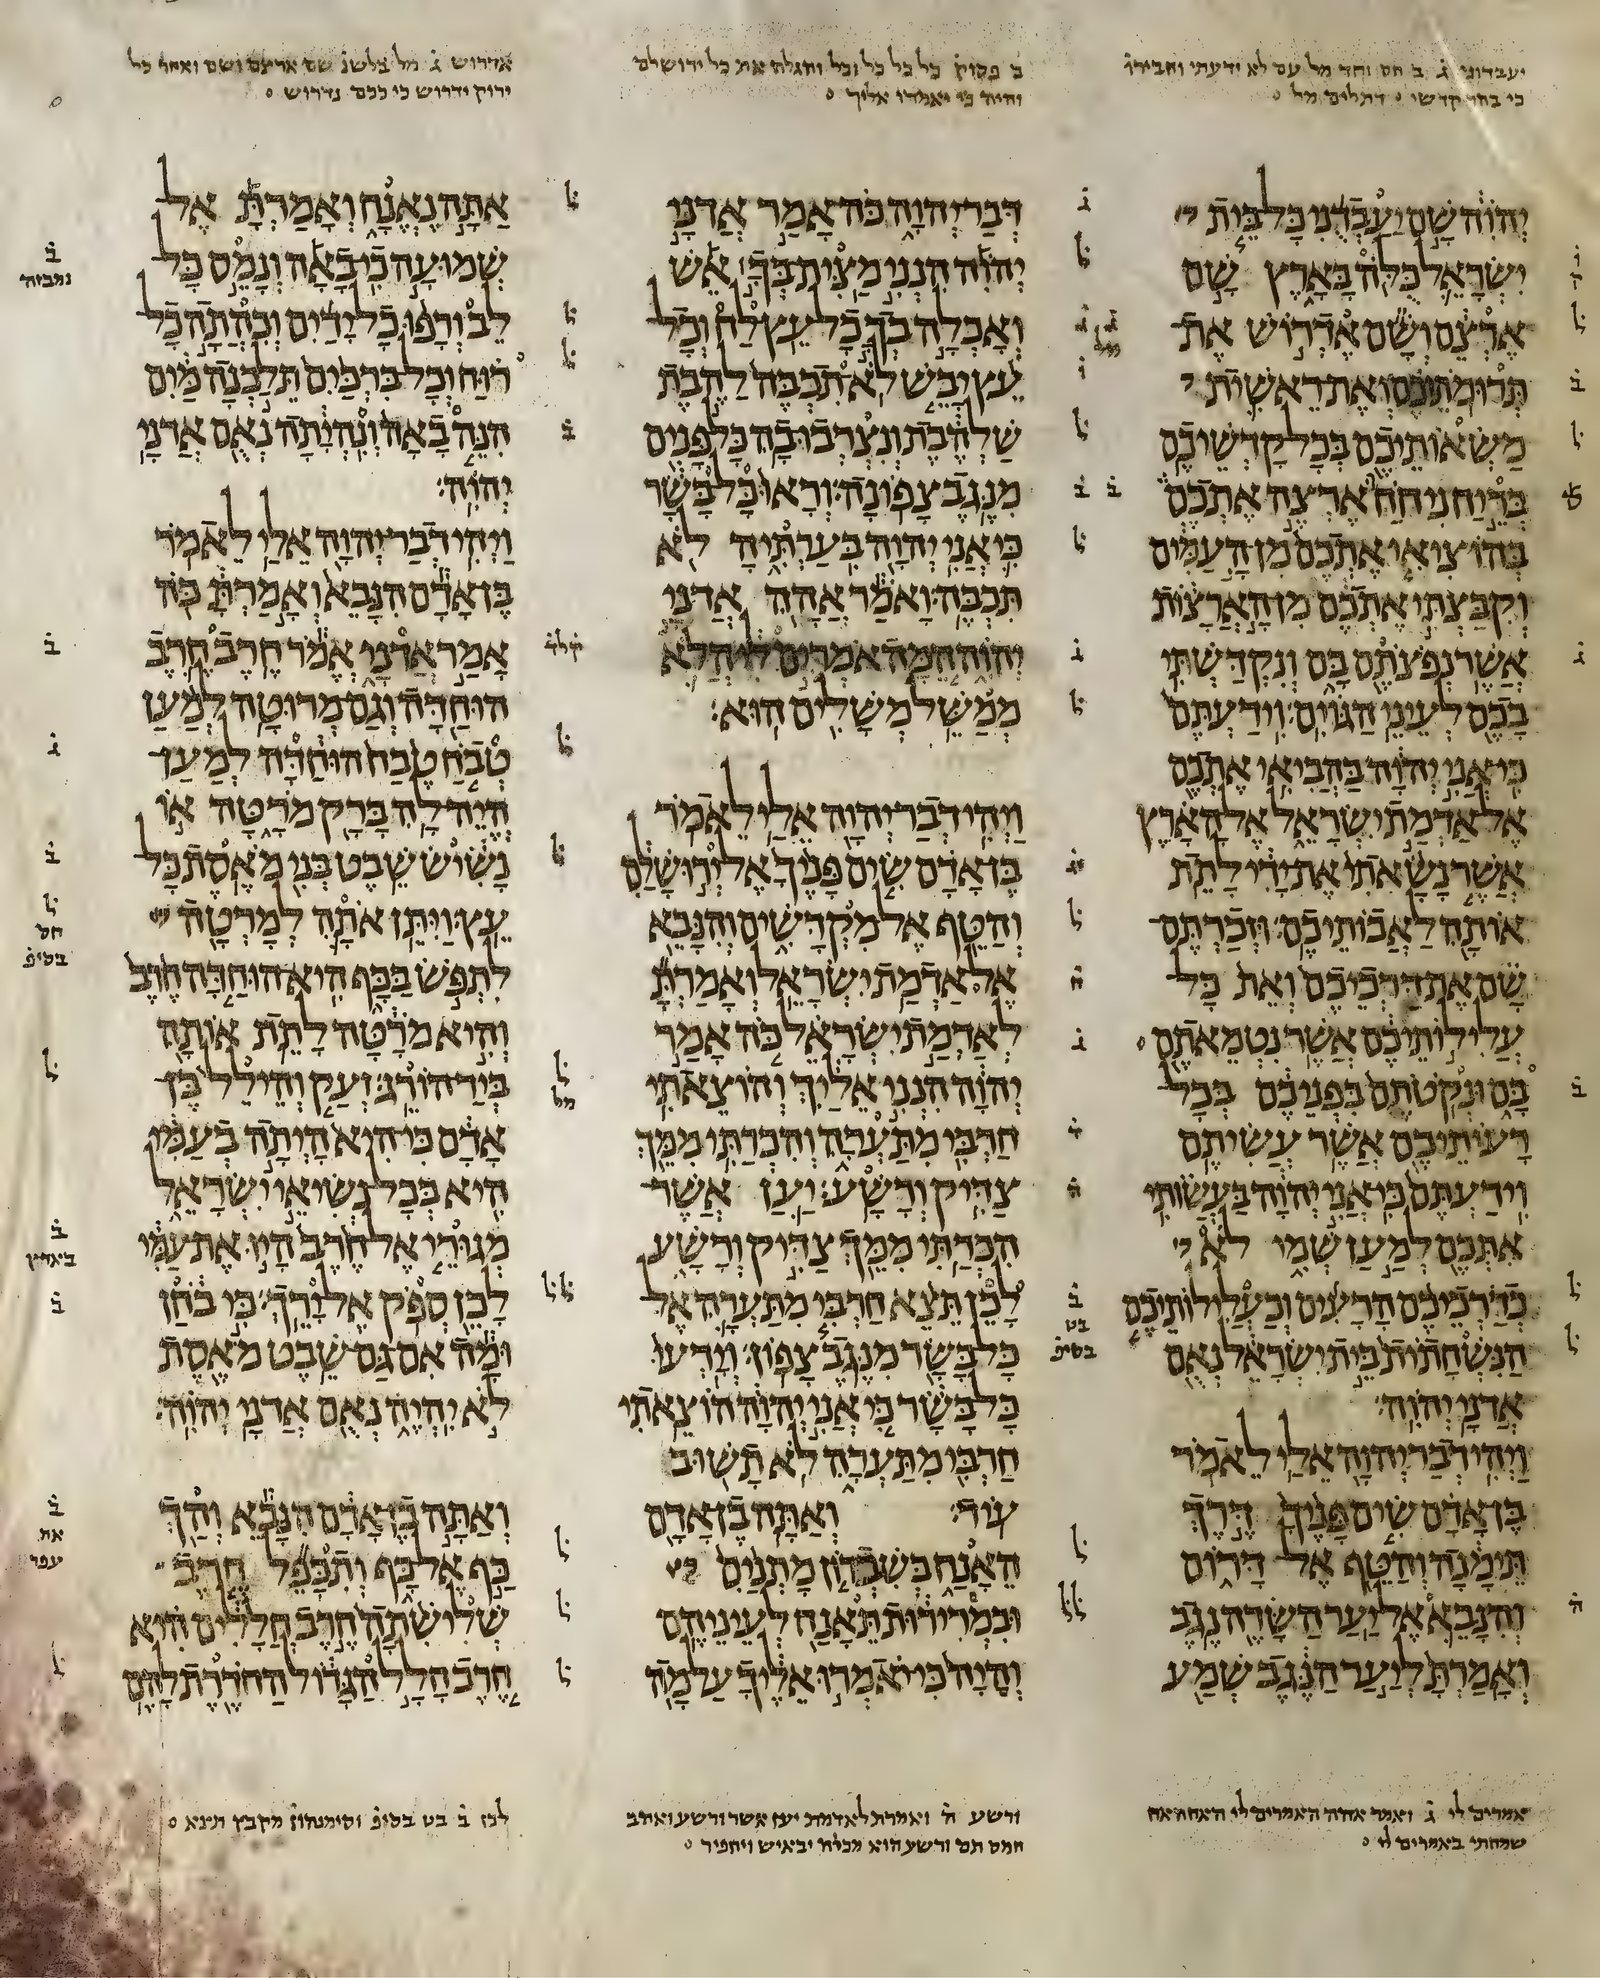 יעבדוני ג ב חס וחד מל עם לא ידעתי וחבירו
כי בהר קדשי דתלים מל
יהוה שם יעבדני כל בית
ישראל כלה בארץ שם
ארצם ושם אדרוש את
תרומתיכם ואת ראשית
משאותיכם בכל קדשיכם
בריח ניחח ארצה אתכם
בהוציאי אתכם מן העמים
וקבצתי אתכם מן הארצות
אשר נפצתם בם ונקדשתי
בכם לעיני הגוים וידעתם
כי אני יהוה בהביאי אתכם
אל אדמת ישראל אל הארץ
אשר נשאתי את ידי לתת
אותה לאבותיכם וזכרתם
שם את דרכיכם ואת כל
עלילותיכם אשר נטמאתם
בם ונקטתם בפניכם בכל
רעותיכם אשר עשיתם
וידעתם כי אני יהוה בעשותי
אתכם למען שמי לא
כדרכיכם הרעים וכעלילותיכם
הנשחתות בית ישראל נאם
אדני יהוה
ויהי דבר יהוה אלי לאמר
בן אדם שים פניך דרך
תימנה והטף אל דרום
והנבא אל יער השדה נגב
ואמרת ליער הנגב שמע
ב פסוק כל כל כל וכל והגלה את כל ירושלם
והיה כי יאמרו אליך
דבר יהוה כה אמר אדני
יהוה הנני מצית בך אש
ואכלה בך כל עץ לח וכל
עץ יבש לא תכבה להבת
שלהבת ונצרבו בה כל פנים
מנגב צפונה וראו כל בשר
כי אני יהוה בערתיה לא
תכבה ואמר אהה אדני
יהוה המה אמרים לי הלא
ממשל משלים הוא
ויהי דבר יהוה אלי לאמר
בן אדם שים פניך אל ירושלם
והטף אל מקדשים והנבא
אל אדמת ישראל ואמרת
לאדמת ישראל כה אמר
יהוה הנני אליך והוצאתי
חרבי מתערה והכרתי ממך
צדיק ורשע יען אשר
הכרתי ממך צדיק ורשע
לכן תצא חרבי מתערה אל
כל בשר מנגב צפון וידעו
כל בשר כי אני יהוה הוצאתי
חרבי מתערה לא תשוב
עוד ואתה בן אדם
האנח בשברון מתנים
ובמרירות תאנח לעיניהם
והיה כי יאמרו אליך על מה
אדרוש ג מל בלשנ שם ארצם ושם ואחר כל
ירוק ידרוש כי ככם נדרוש
אתה נאנח ואמרת אל
שמועה כי באה ונמס כל
לב ורפו כל ידים וכהתה כל
רוח וכל ברכים תלכנה מים
הנה באה ונהיתה נאם אדני
יהוה
ויהי דבר יהוה אלי לאמר
בן אדם הנבא ואמרת כה
אמר אדני אמר חרב חרב
הוחדה וגם מרוטה למען
טבח טבח הוחדה למען
היה לה ברק מרטה או
נשיש שבט בני מאסת כל
עץ ויתן אתה למרטה
לתפש בכף היא הוחדה חרב
והיא מרטה לתת אותה
ביד הורג זעק והילל בן
אדם כי היא היתה בעמי
היא בכל נשיאי ישראל
מגורי אל חרב היו את עמי
לכן ספק אל ירך כי בחן
ומה אם גם שבט מאסת
לא יהיה נאם אדני יהוה
ואתה בן אדם הנבא והך
כף אל כף ותכפל חרב
שלישתה חרב חללים היא
חרב חלל הגדול החדרת להם
אמרים לי ג ואמר אהה האמרים לי האח האח
שמחתי באמרים לי
ורשע ה ואמרת לאדמת יען אשר ורשע ואהב
חמס תם ורשע הוא מכלה יבאיש ויחפיר
לכן ב בט בסיפ וסימנהון מקבץ תצא